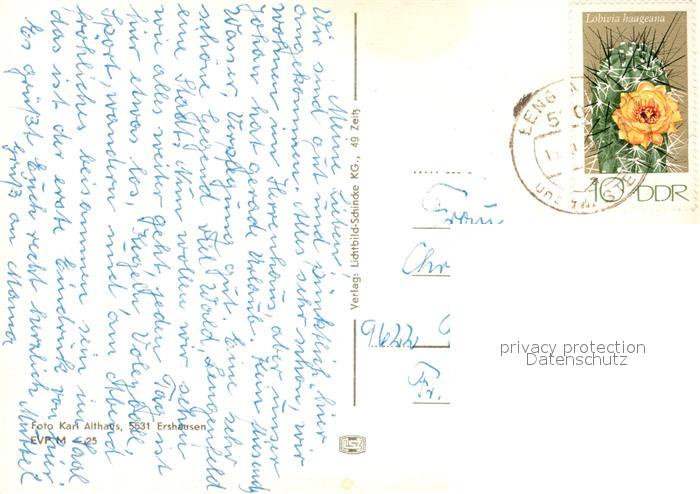 Meine Lieben!
Wir sind gut und pünktlich hier
angekommen. Alles sehr schön, wir
wohnen im Herrenhaus, aber unser
Johan hat gerade Urlaub. Kein
Wasser, Verpflegung gut. Eine sehr
schöne Gegend viel Wald, Lengenfeld
eine Stadt. Nun wollen wir sehn
wie alles weiter geht, jeden Tag ist
hir etwas los, Kegeln, Volleyball,
Sport, wandern und am Abend
fröhliches beisammen sein im Saal
das ist der erste Eindruck von hier.
Es grüßt Euch recht herzlich Mutter
gruß an Mama
Verlag: Lichtbild-Schincke KG., 49 Zeitz
Foto Karl Althaus, 5631 Ershausen
EVP M -,25
Lobivia haageana
10 DDR
LENG
Frau
Chr
9622
Fr.
privacy protection
Datenschutz